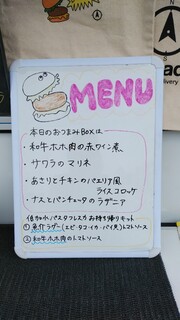 MENU
本日のおつまみBOXは
・和牛ホホ肉の赤ワイン煮
・サワラのマリネ
・あさりとチキンのパエリア風
ライスコロッケ
・ナスとパンチェッタのラザニア
低加水パスタフレスカ お持ち帰りキット
① 魚介ラグー(エビ・タコ・イカ・バイ貝)トマトソース
② 和牛ホホ肉のトマトソース